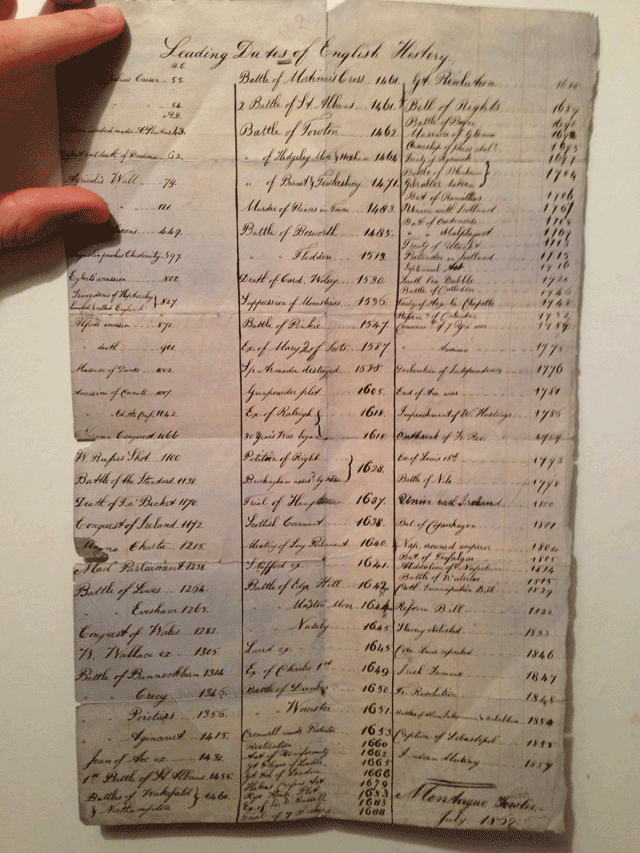 Leading Dates of English History.
B.C.
Caesar 55.
" 54.
A.D.
invaded under A. Plautius 43.
and death of Boadicea 62.
Agricola's Wall 79.
" 121.
449.
Christianity 597.
Egbert's accession 802.
Kingdoms of Heptarchy } 827
united & called England
Alfred's accession 871
" death 901
Massacre of Danes 1002
Accession of Canute 1017
" Ed. the Conf. 1042
Conquest 1066
W. Rufus Shot 1100
Battle of the Standard 1138.
Death of Becket 1170
Conquest of Ireland 1172.
Magna Charta 1215.
Mad Parliament 1258.
Battle of Lewes 1264.
" Evesham 1265.
Conquest of Wales 1282.
W. Wallace ex 1305
Battle of Bannockburn 1314
" " Crecy 1346.
" " Poictiers 1356.
" " Agincourt 1415.
Joan of Arc ex 1431.
1st Battle of St Albans 1455.
Battles of Wakefield } 1460.
& Northampton
Battle of Mortimer's Cross 1461.
2 Battle of St. Albans 1461.
Battle of Towton 1462.
" of Hedgeley Moor & Hexham 1464
" of Barnet & Tewkesbury 1471.
Murder of Princes in Tower 1483.
Battle of Bosworth 1485.
" " Flodden 1513.
Death of Card. Wolsey 1530.
Suppression of Monasteries 1536.
Battle of Pinkie 1547.
Ex. of Mary Q. of Scots 1587
Sp. Armada destroyed 1588
Gunpowder plot 1605.
Ex. of Raleigh } 1618.
30 Years War began 1618
Petition of Right } 1628.
Buckingham
Trial of Hampden 1637.
Scottish Covenant 1638.
Meeting of Long Parliament 1640.
Strafford ex 1641.
Battle of Edge Hill 1642
" Marston Moor 1644
" Naseby 1645.
Laud ex 1645
Ex of Charles 1st 1649
Battle of Dunbar 1650.
" Worcester 1651.
Cromwell made Protector 1653
Restoration 1660
Act of Uniformity 1662
Gt Plague of London 1665
Gt Fire of London 1666
Habeas Corpus Act 1679
Rye House Plot 1683
Ex. of Russell 1683
Trial of 7 Bishops 1688
Gt Revolution 1688
Bill of Rights 1689
Battle of Boyne 1690
Massacre of Glencoe 1692
Censorship of Press abol. 1695
Treaty of Ryswick 1697
Battle of Blenheim } 1704
Gibraltar taken
Bat. of Ramillies 1706
Union with Scotland 1707
Bat. of Oudenarde 1708
" " Malplaquet 1709
Treaty of Utrecht 1713
Pretender in Scotland 1715
Septennial Act 1716
South Sea Bubble 1720
Battle of Culloden 1746
Treaty of Aix la Chapelle 1748
1752
of 7 Yrs war
" America 1775
Declaration of Independence 1776
End of Am. war 1781
Impeachment of W. Hastings 1786
Outbreak of Fr Rev. 1789
Ex of Louis 16th 1793
Battle of Nile 1798
Union with Ireland 1800
Bat. of Copenhagen 1801
Nap. crowned emperor 1804
Bat. of Trafalgar 1805
Abdication of Napoleon 1814
Battle of Waterloo 1815
Cath. Emancipation Bill 1829
Reform Bill 1832
Slavery abolished 1833
Corn Laws repealed 1846
Irish Famine 1847
Fr Revolution 1848
Battles of Alma Inkermann & Balaklava 1854
Capture of Sebastopol 1855
Indian Mutiny 1857
Montague Fowler.
July,